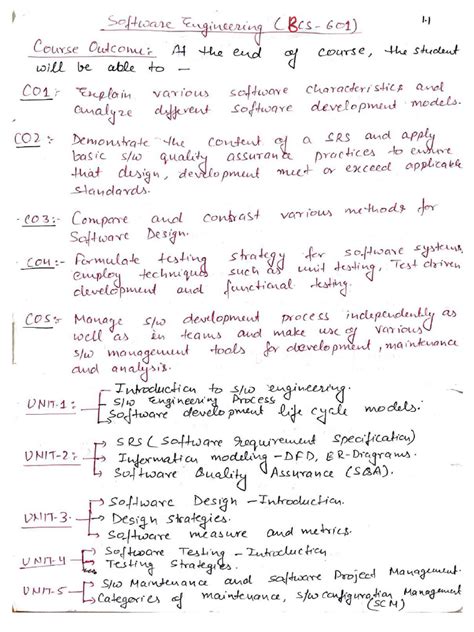 Software Engineering (BCS-601)
1.1
Course Outcome:- At the end of course, the student
will be able to -
CO1:- Explain various software characteristics and
analyze different software development models.
CO2:- Demonstrate the content of a SRS and apply
basic s/w quality assurance practices to ensure
that design, development meet or exceed applicable
standards.
CO3:- Compare and contrast various methods for
Software Design.
CO4:- Formulate testing strategy for software systems,
employ techniques such as unit testing, Test driven
development and functional testing.
CO5:- Manage s/w development process independently as
well as in teams and make use of various
s/w management tools for development, maintenance
and analysis.
UNIT-1:- Introduction to s/w engineering.
S/W Engineering Process
Software development life cycle models.
UNIT-2:- SRS (Software requirement specification)
Information modeling - DFD, ER-Diagrams.
Software Quality Assurance (SQA).
UNIT-3- Software Design - Introduction.
Design Strategies.
Software measure and metrics.
UNIT-4 Software Testing - Introduction
Testing Strategies.
UNIT-5- S/W Maintenance and software Project Management.
Categories of maintenance, s/w configuration Management
(SCM)